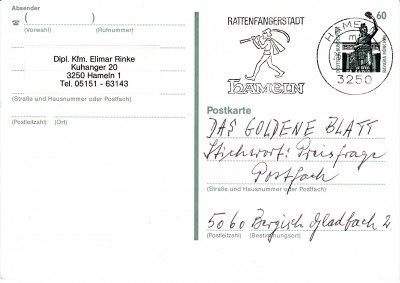 Absender
( )
(Vorwahl) (Rufnummer)
Dipl. Kfm. Elimar Rinke
Kuhanger 20
3250 Hameln 1
Tel. 05151 - 63143
(Straße und Hausnummer oder Postfach)
(Postleitzahl) (Ort)
RATTENFÄNGERSTADT
HAMELN
HAMELN
3250
60
Postkarte
DAS GOLDENE BLATT
Stichwort: Preisfrage
Postfach
(Straße und Hausnummer oder Postfach)
5060 Bergisch Gladbach 2
(Postleitzahl) (Bestimmungsort)